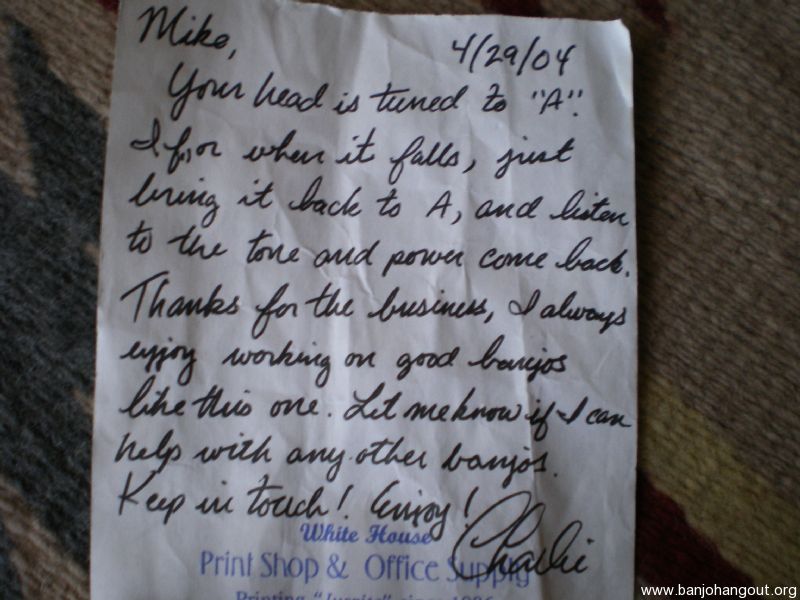 Mike,
4/29/04
Your head is tuned to "A".
If, or when it falls, just
bring it back to A, and listen
to the tone and power come back.
Thanks for the business, I always
enjoy working on good banjos
like this one. Let me know if I can
help with any other banjos.
Keep in touch! Enjoy!
Charlie
White House
Print Shop & Office Supply
www.banjohangout.org